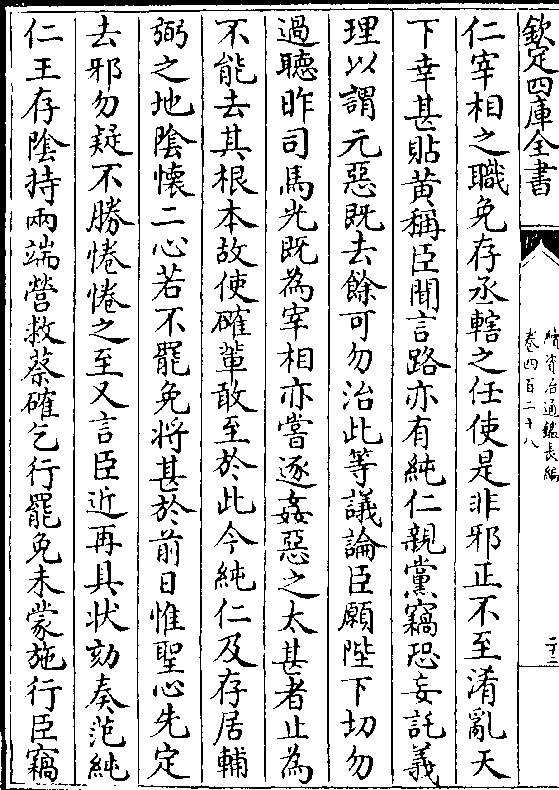 欽定四庫全書
續資治通鑑長編
卷四百二十八
二十三
仁宰相之職免存丞轄之任使是非邪正不至淆亂天
下幸甚貼黃稱臣聞言路亦有純仁親黨竊恐妄託義
理以謂元惡既去餘可勿治此等議論臣願陛下切勿
過聽昨司馬光既為宰相亦嘗逐姦惡之太甚者止為
不能去其根本故使確輩敢至於此今純仁及存居輔
弼之地陰懷二心若不罷免將甚於前日惟聖心先定
去邪勿疑不勝惓惓之至又言臣近再具狀劾奏范純
仁王存陰持兩端營救蔡確乞行罷免未蒙施行臣竊